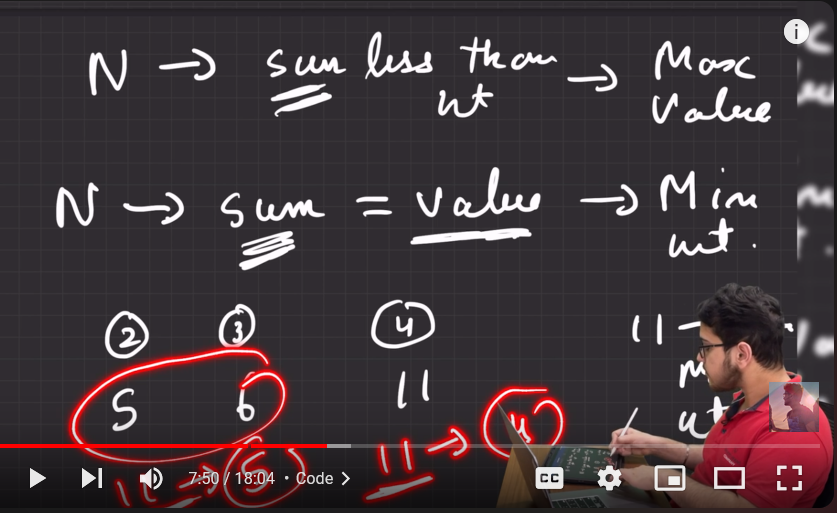 N → sum less than wt → Max Value
N → sum = value → Min wt.
② ③ ④
5 6 11 11 -
11 → 5 11 → 4
7:50 / 18:04 • Code >
CC
i